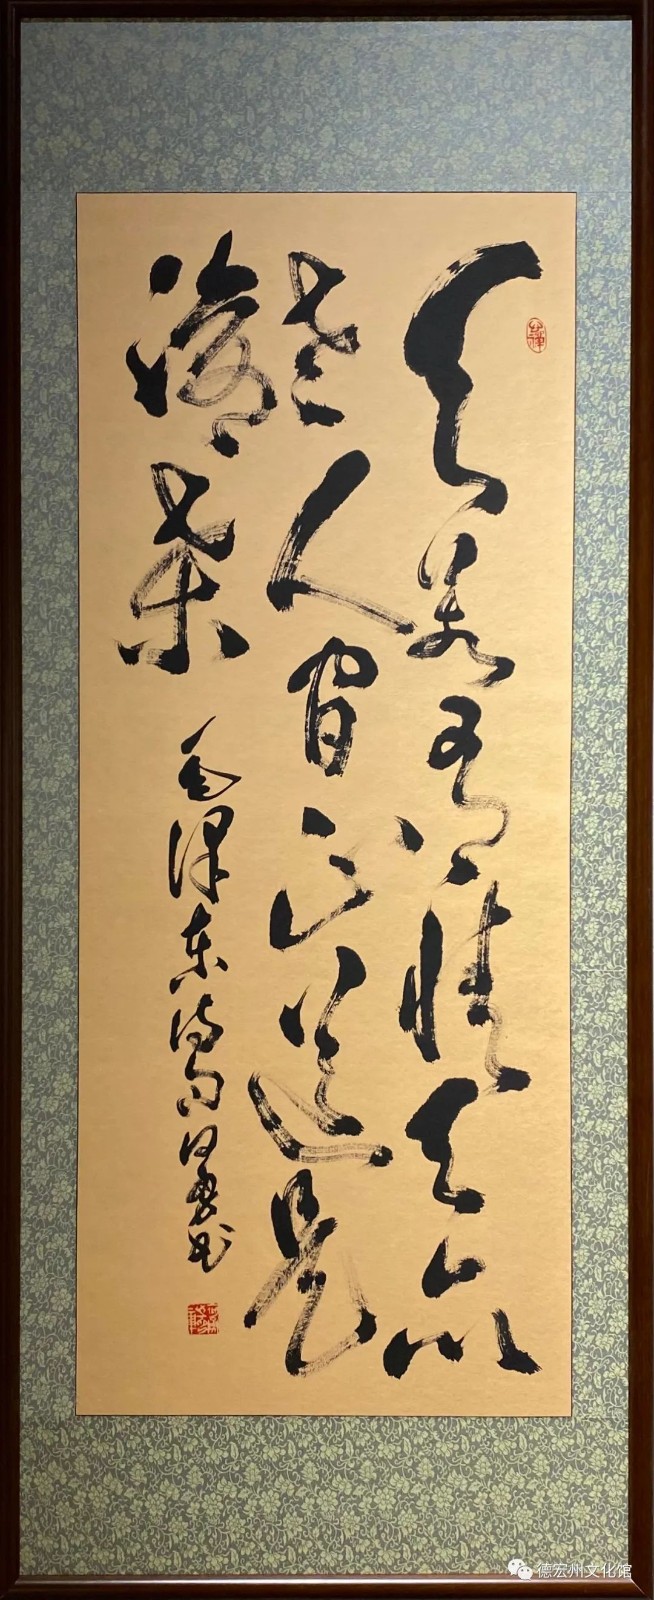 天若有情天亦
老人间正道是
沧桑
毛泽东诗句何勇书
德宏州文化馆